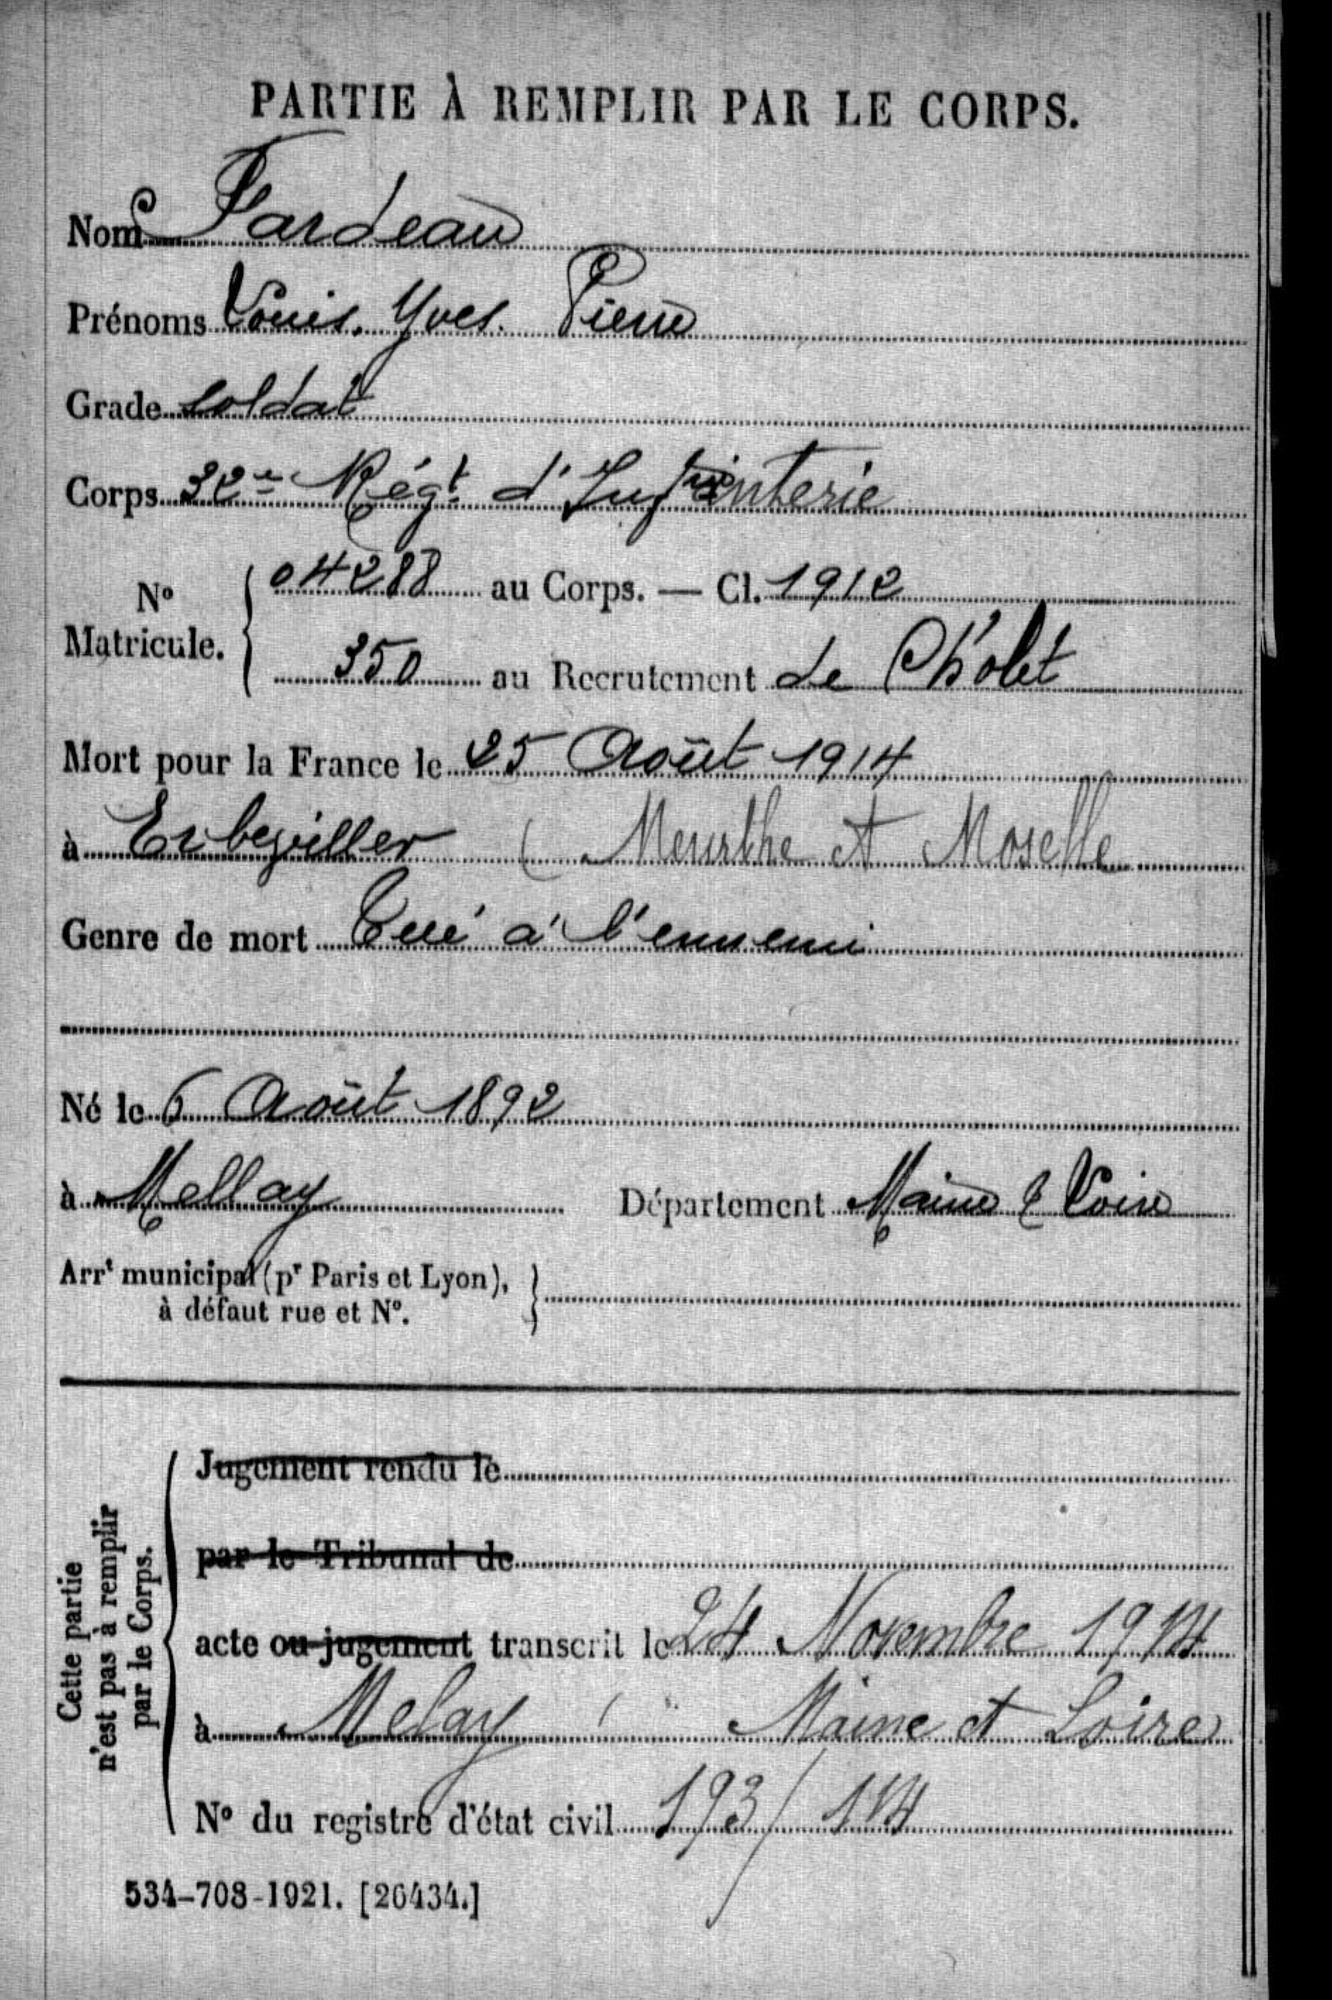 PARTIE À REMPLIR PAR LE CORPS.
Nom Fardeau
Prénoms Louis. Yves. Pierre
Grade soldat
Corps 32e Régt d'Infanterie
No Matricule. 04288 au Corps. — Cl. 1912
350 au Recrutement de Cholet
Mort pour la France le 25 Août 1914
à Erbeviller ( Meurthe et Moselle
Genre de mort Tué à l'ennemi
Né le 6 Août 1892
à Mellay Département Maine & Loire
Arrt municipal (pr Paris et Lyon),
à défaut rue et No.
Cette partie
n'est pas à remplir
par le Corps.
Jugement rendu le
par le Tribunal de
acte ou jugement transcrit le 24 Novembre 1914
à Melay Maine et Loire
No du registre d'état civil 193/
534-708-1921. [26434.]